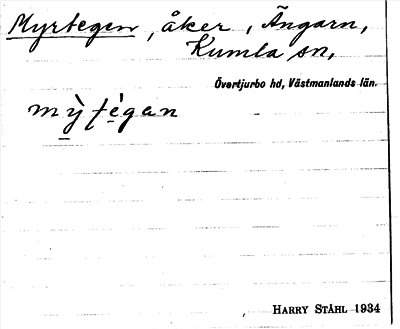 Myrtegen, åker, Ängarn,
Kumla sn,
Övertjurbo hd, Västmanlands län.
HARRY STÅHL 1934